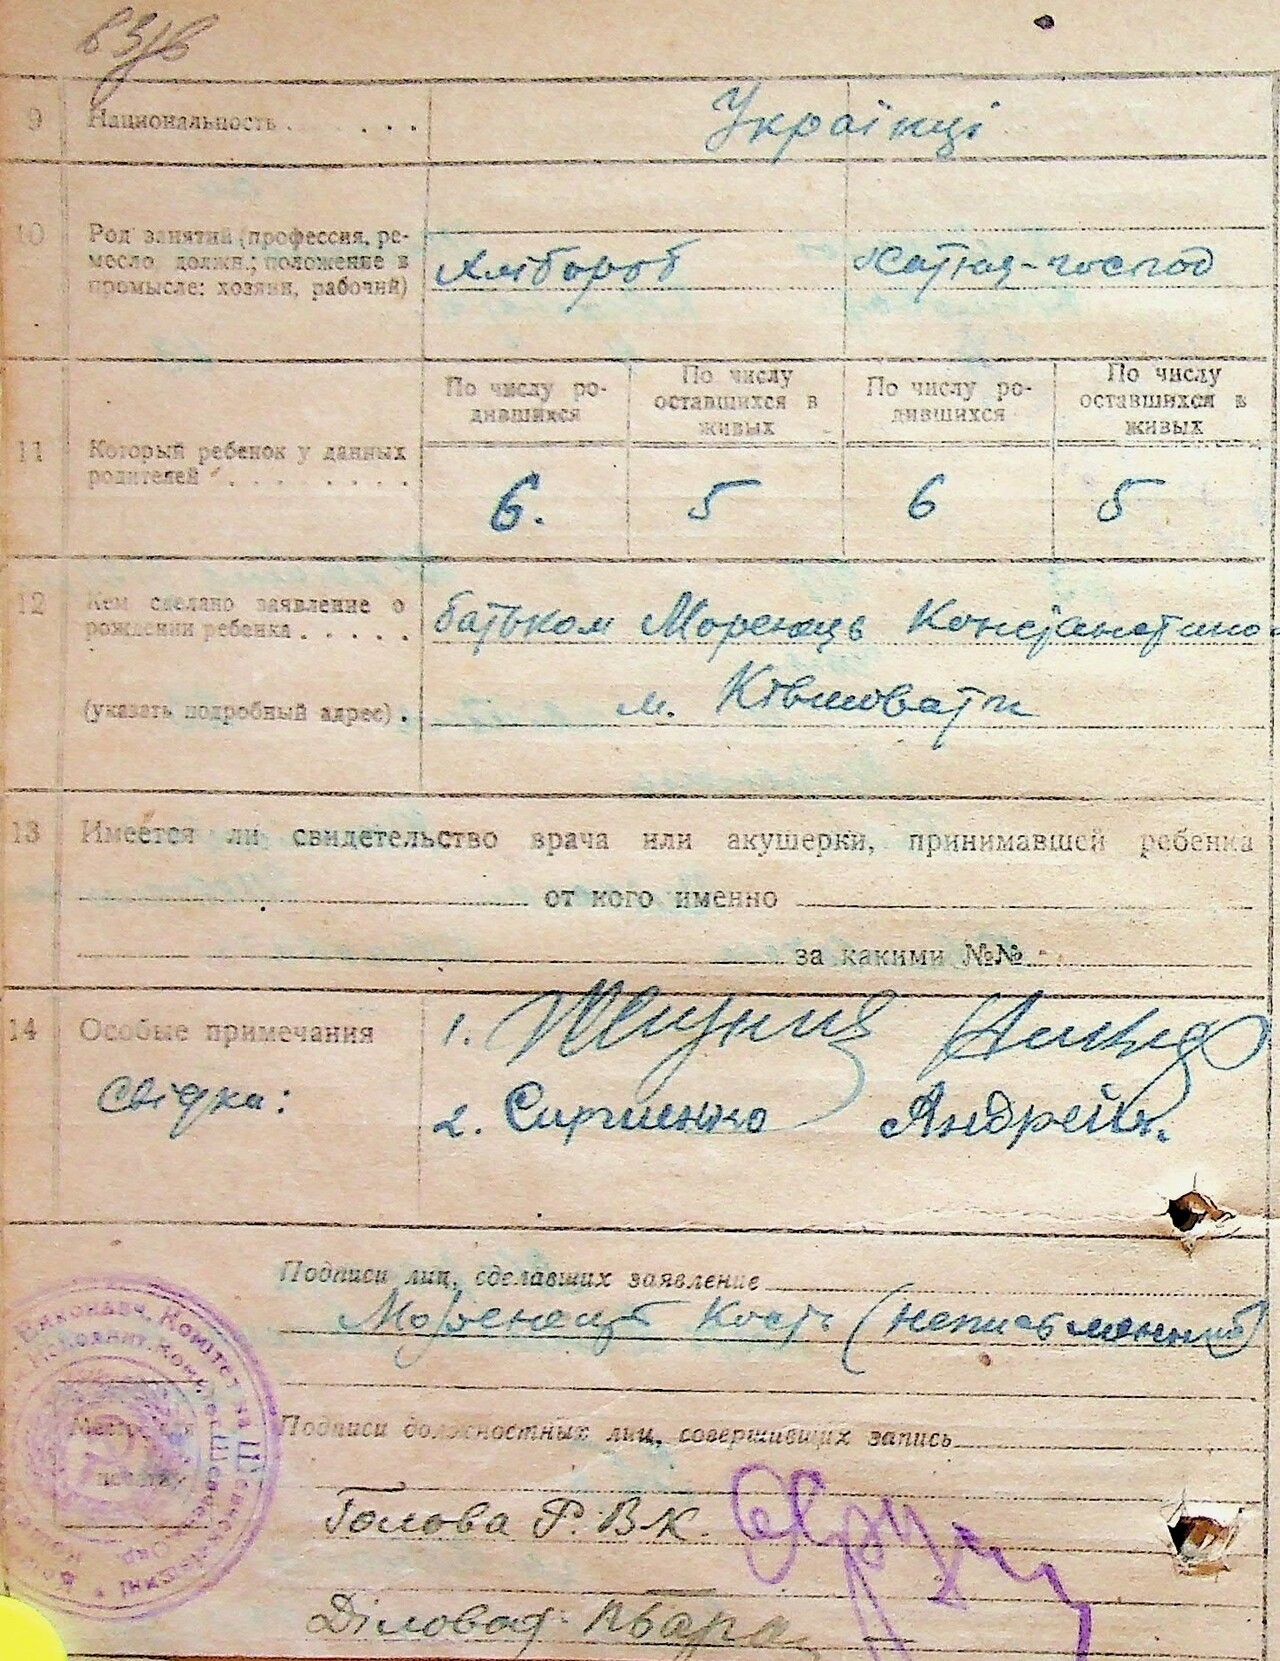 9 Национальность . . . . . . . Українці
10 Род занятий (профессия, ре-
месло, должн.; положение в
промысле: хозяин, рабочий)
Хлібороб Хатня-господ
11 Который ребенок у данных
родителей . . . . . . . .
По числу ро-
дившихся
По числу
оставшихся в
живых
По числу ро-
дившихся
По числу
оставшихся в
живых
6. 5 6 5
12 Кем сделано заявление о
рождении ребенка . . . . .
(указать подробный адрес) .
батьком Моренець Константино-
м. Ківшовати
13 Имеется ли свидетельство врача или акушерки, принимавшей ребенка
от кого именно
за какими №№
14 Особые примечания
Свідки:
1.
2. Сиргиенко Андрей
Подписи лиц, сделавших заявление
Моренець Кость (неписьменний)
Подписи должностных лиц, совершивших запись
Голова Р.В.К.
Діловод